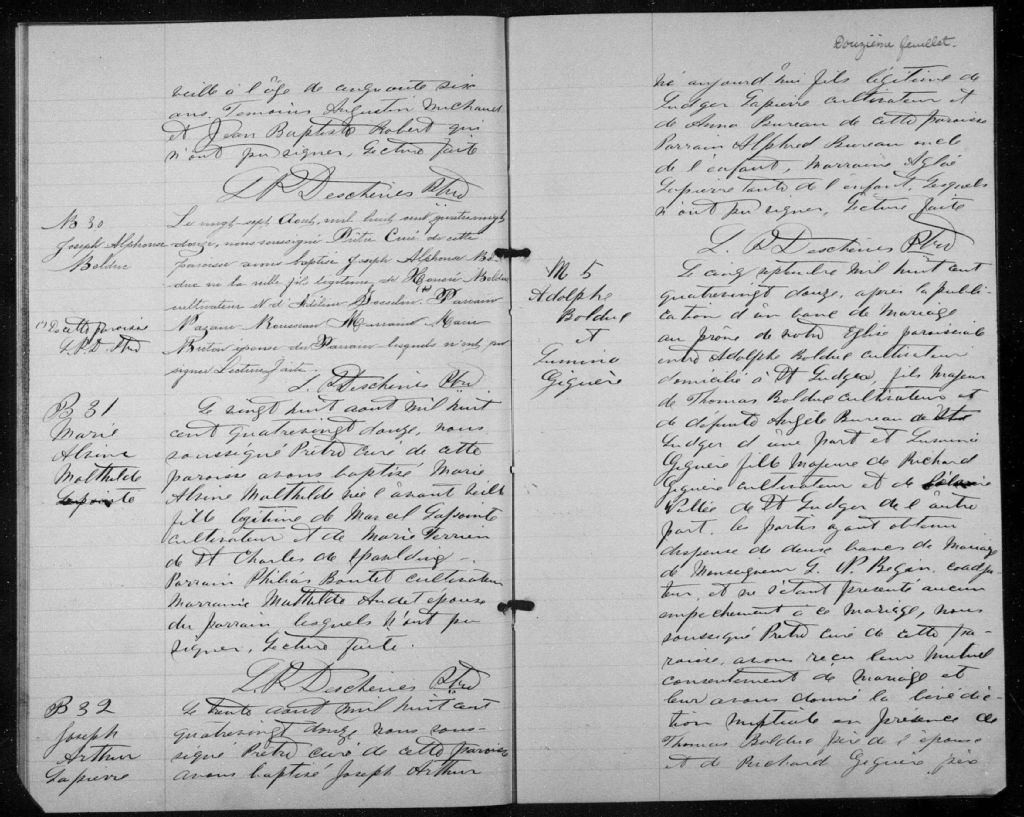 veille à l'âge de cinquante six
ans. Temoins Augustin Michaud
et Jean Baptiste Robert qui
n'ont pu signer, Lecture faite
L. P. Deschênes Ptre
B 30
Joseph Alphonse
Bolduc
Le vingt sept Aout, mil huit cent quatrevingt
douze, nous soussigné Prêtre Curé de cette
paroisse avons baptisé Joseph Alphonse Bol
duc né la veille fils légitime de Honoré Bolduc
cultivateur et d' Parrain
(1) De cette paroisse
L.P.D. Ptre
Rousseau Marraine Marie
Breton épouse du Parrain lesquels n'ont pu
signer Lecture faite.
L. P. Deschênes Ptre
B 31
Marie
Alvine
Mathilde
Lapointe
Le vingt huit aout mil huit
cent quatrevingt douze, nous
soussigné Prêtre curé de cette
paroisse avons baptisé Marie
Alvine Malthilde née l'avant veille
fille légitime de Marcel Lapointe
cultivateur et de Marie Perrien
de St Charles de Spaulding
Parrain Philias Boutet cultivateur
Marraine Mathilde Audet épouse
du parrain lesquels n'ont pu
signer, Lecture faite.
L. P. Deschênes Ptre
B 32
Joseph
Arthur
Lapierre
Le trente aout mil huit cent
quatrevingt douze nous sous-
signé Prêtre curé de cette paroisse
avons baptisé Joseph Arthur
Douzième feuillet.
né aujourd'hui fils légitime de
Ludger Lapierre cultivateur et
de Anna Bureau de cette paroisse
Parrain Alphred Bureau oncle
de l'enfant, Marraine Aglaé
Lapierre tante de l'enfant, lesquels
n'ont pu signer, Lecture faite
L. P. Deschênes Ptre
M 5
Adolphe
Bolduc
et
Lumina
Giguère
Le cinq septembre mil huit cent
quatrevingt douze, après la publi-
cation d'un banc de mariage
au prône de notre Eglise paroissiale
entre Adolphe Bolduc cultivateur
domicilié à St Ludger, fils majeur
de Thomas Bolduc cultivateur et
de défunte Angèle Bureau de St
Ludger d'une part et Lumina
Giguère fille majeure de Richard
Giguère cultivateur et de
Vallée de St Ludger de l'autre
part. les partis ayant obtenu
dispense de deux bancs de mariage
de Monseigneur L. N. Bégin, coadju-
teur, et ne s'étant presenté aucun
empechement à ce mariage, nous
soussigné Prêtre curé de cette pa-
roisse, avons reçu leur mutuel
consentement de mariage et
leur avons donné la bénédic-
tion nuptiale en présence de
Thomas Bolduc père de l'époux
et de Richard Giguère père